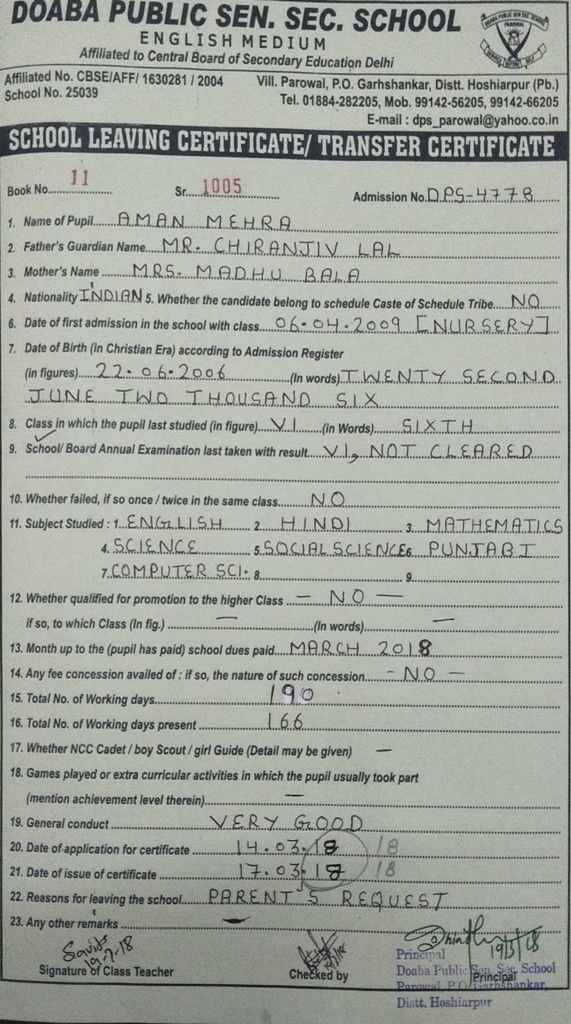 DOABA PUBLIC SEN. SEC. SCHOOL
ENGLISH MEDIUM
Affiliated to Central Board of Secondary Education Delhi
Affiliated No. CBSE/AFF/ 1630281 / 2004 Vill. Parowal, P.O. Garhshankar, Distt. Hoshiarpur (Pb.)
School No. 25039 Tel. 01884-282205, Mob. 99142-56205, 99142-66205
E-mail : dps_parowal@yahoo.co.in
SCHOOL LEAVING CERTIFICATE/ TRANSFER CERTIFICATE
Book No. 11 Sr. 1005 Admission No. DPS-4778
1. Name of Pupil AMAN MEHRA
2. Father's Guardian Name MR. CHIRANJIV LAL
3. Mother's Name MRS. MADHU BALA
4. Nationality INDIAN 5. Whether the candidate belong to schedule Caste of Schedule Tribe NO
6. Date of first admission in the school with class 06.04.2009 [NURSERY]
7. Date of Birth (in Christian Era) according to Admission Register
(in figures) 22.06.2006 (In words) TWENTY SECOND
JUNE TWO THOUSAND SIX
8. Class in which the pupil last studied (in figure) VI (in Words) SIXTH
9. School/ Board Annual Examination last taken with result VI, NOT CLEARED
10. Whether failed, if so once / twice in the same class NO
11. Subject Studied : 1. ENGLISH 2. HINDI 3. MATHEMATICS
4. SCIENCE 5. SOCIAL SCIENCE 6. PUNJABI
7. COMPUTER SCI. 8. 9.
12. Whether qualified for promotion to the higher Class - NO -
if so, to which Class (In fig.) - (In words) -
13. Month up to the (pupil has paid) school dues paid MARCH 2018
14. Any fee concession availed of : if so, the nature of such concession - NO -
15. Total No. of Working days 190
16. Total No. of Working days present 166
17. Whether NCC Cadet / boy Scout / girl Guide (Detail may be given) -
18. Games played or extra curricular activities in which the pupil usually took part
(mention achievement level therein) -
19. General conduct VERY GOOD
20. Date of application for certificate 14.03.18 18
21. Date of issue of certificate 17.03.18 18
22. Reasons for leaving the school PARENT'S REQUEST
23. Any other remarks -
Signature of Class Teacher Checked by Principal
Principal
Doaba Public Sen. Sec. School
Parowal, P.O. Garhshankar,
Distt. Hoshiarpur